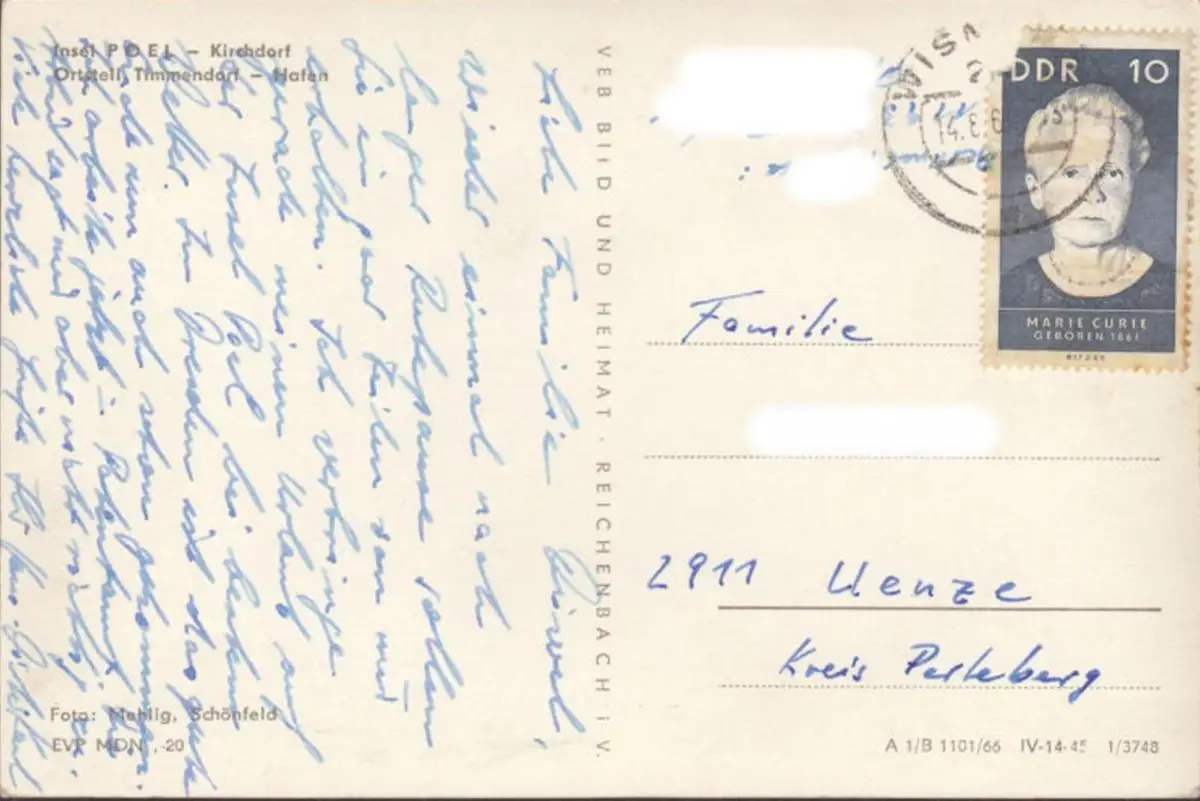 Insel POEL – Kirchdorf
Ortsteil Timmendorf – Hafen
Liebe Familie
wieder einmal nach
langer Ruhepause sollen
Sie ein paar Zeilen von mir
erhalten. Ich verbringe
gerade meinen Urlaub auf
der Insel Poel bei bestem
Wetter. In Dresden ist das gute
Ende nun auch schon gekommen.
ich arbeite jetzt in
Viele herzliche Grüße Ihr
Foto: Mehlig, Schönfeld
EVP MDN ,-20
VEB BILD UND HEIMAT · REICHENBACH i. V.
WISMA
14.8.6
DDR 10
MARIE CURIE
GEBOREN 1867
Familie
2911 Uenze
Kreis Perleberg
A 1/B 1101/66 IV-14-45 1/3748